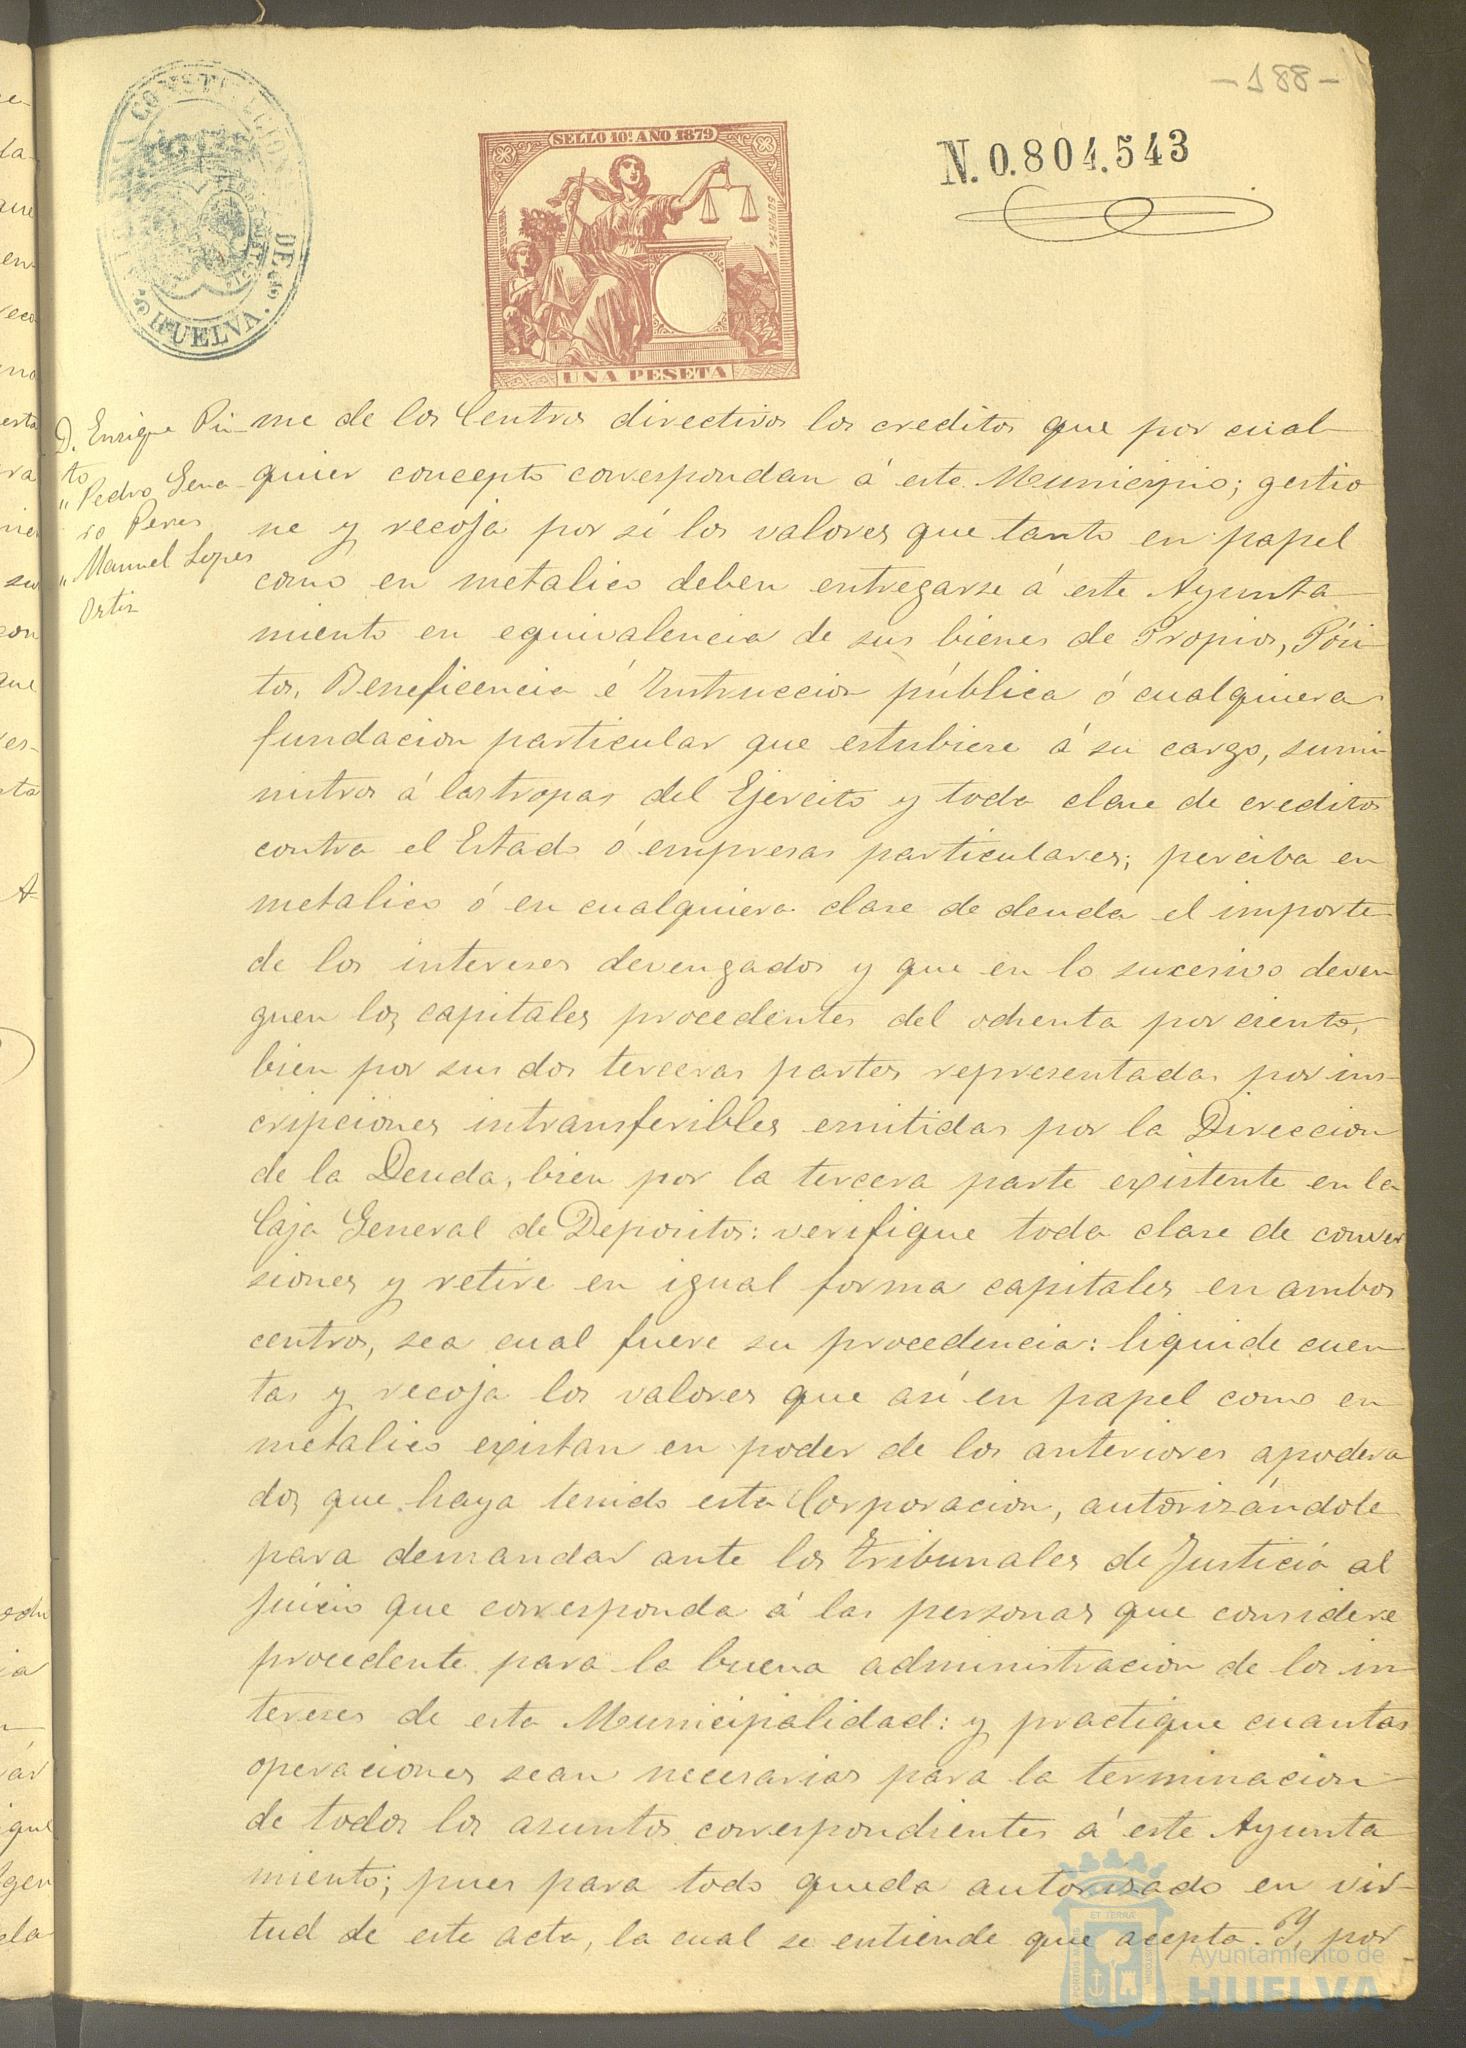 - 188 -
CONSTITUCIONAL DE
HUELVA
SELLO 10º AÑO 1879
UNA PESETA
N. 0.804.543
D. Enrique Pin
to
" Pedro Gena
ro Peres
" Manuel Lopes
Ortiz
me de los Centros directivos los creditos que por cual
quier concepto correspondan á este Municipio; gestio
ne y recoja por sí los valores que tanto en papel
como en metalico deben entregarse á este Ayunta
miento en equivalencia de sus bienes de Propios, Pósi
tos, Beneficencia é Instruccion pública ó cualquiera
fundacion particular que estubiere á su cargo, sumi
nistros á las tropas del Ejercito y toda clase de creditos
contra el Estado ó empresas particulares; perciba en
metalico ó en cualquiera clase de deuda el importe
de los intereses devengados y que en lo sucesivo deven
guen los capitales procedentes del ochenta por ciento,
bien por sus dos terceras partes representadas por ins-
cripciones intransferibles emitidas por la Direccion
de la Deuda, bien por la tercera parte existente en la
Caja General de Depositos: verifique toda clase de conver
siones y retire en igual forma capitales en ambos
centros, sea cual fuere su procedencia: liquide cuen
tas y recoja los valores que así en papel como en
metálico existan en poder de los anteriores apodera
dos que haya tenido esta Corporacion, autorizándole
para demandar ante los tribunales de Justicia al
juicio que corresponda á las personas que considere
procedente para la buena administracion de los in
tereses de esta Municipalidad: y practique cuantas
operaciones sean necesarias para la terminacion
de todos los asuntos correspondientes á este Ayunta
miento; pues para todo queda autorizado en vir-
tud de este acta, la cual se entiende que acepta. Y, por
Ayuntamiento de
HUELVA